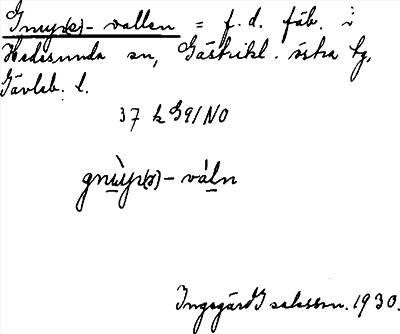 Gnuyr(s)-vallen = f.d. fäb. i
Hedesunda sn, Gästrikl. östra tg,
Gävleb. l.
37 k G91 NO
gnùyr(s)-váln
Ingegärd Isaksson. 1930.